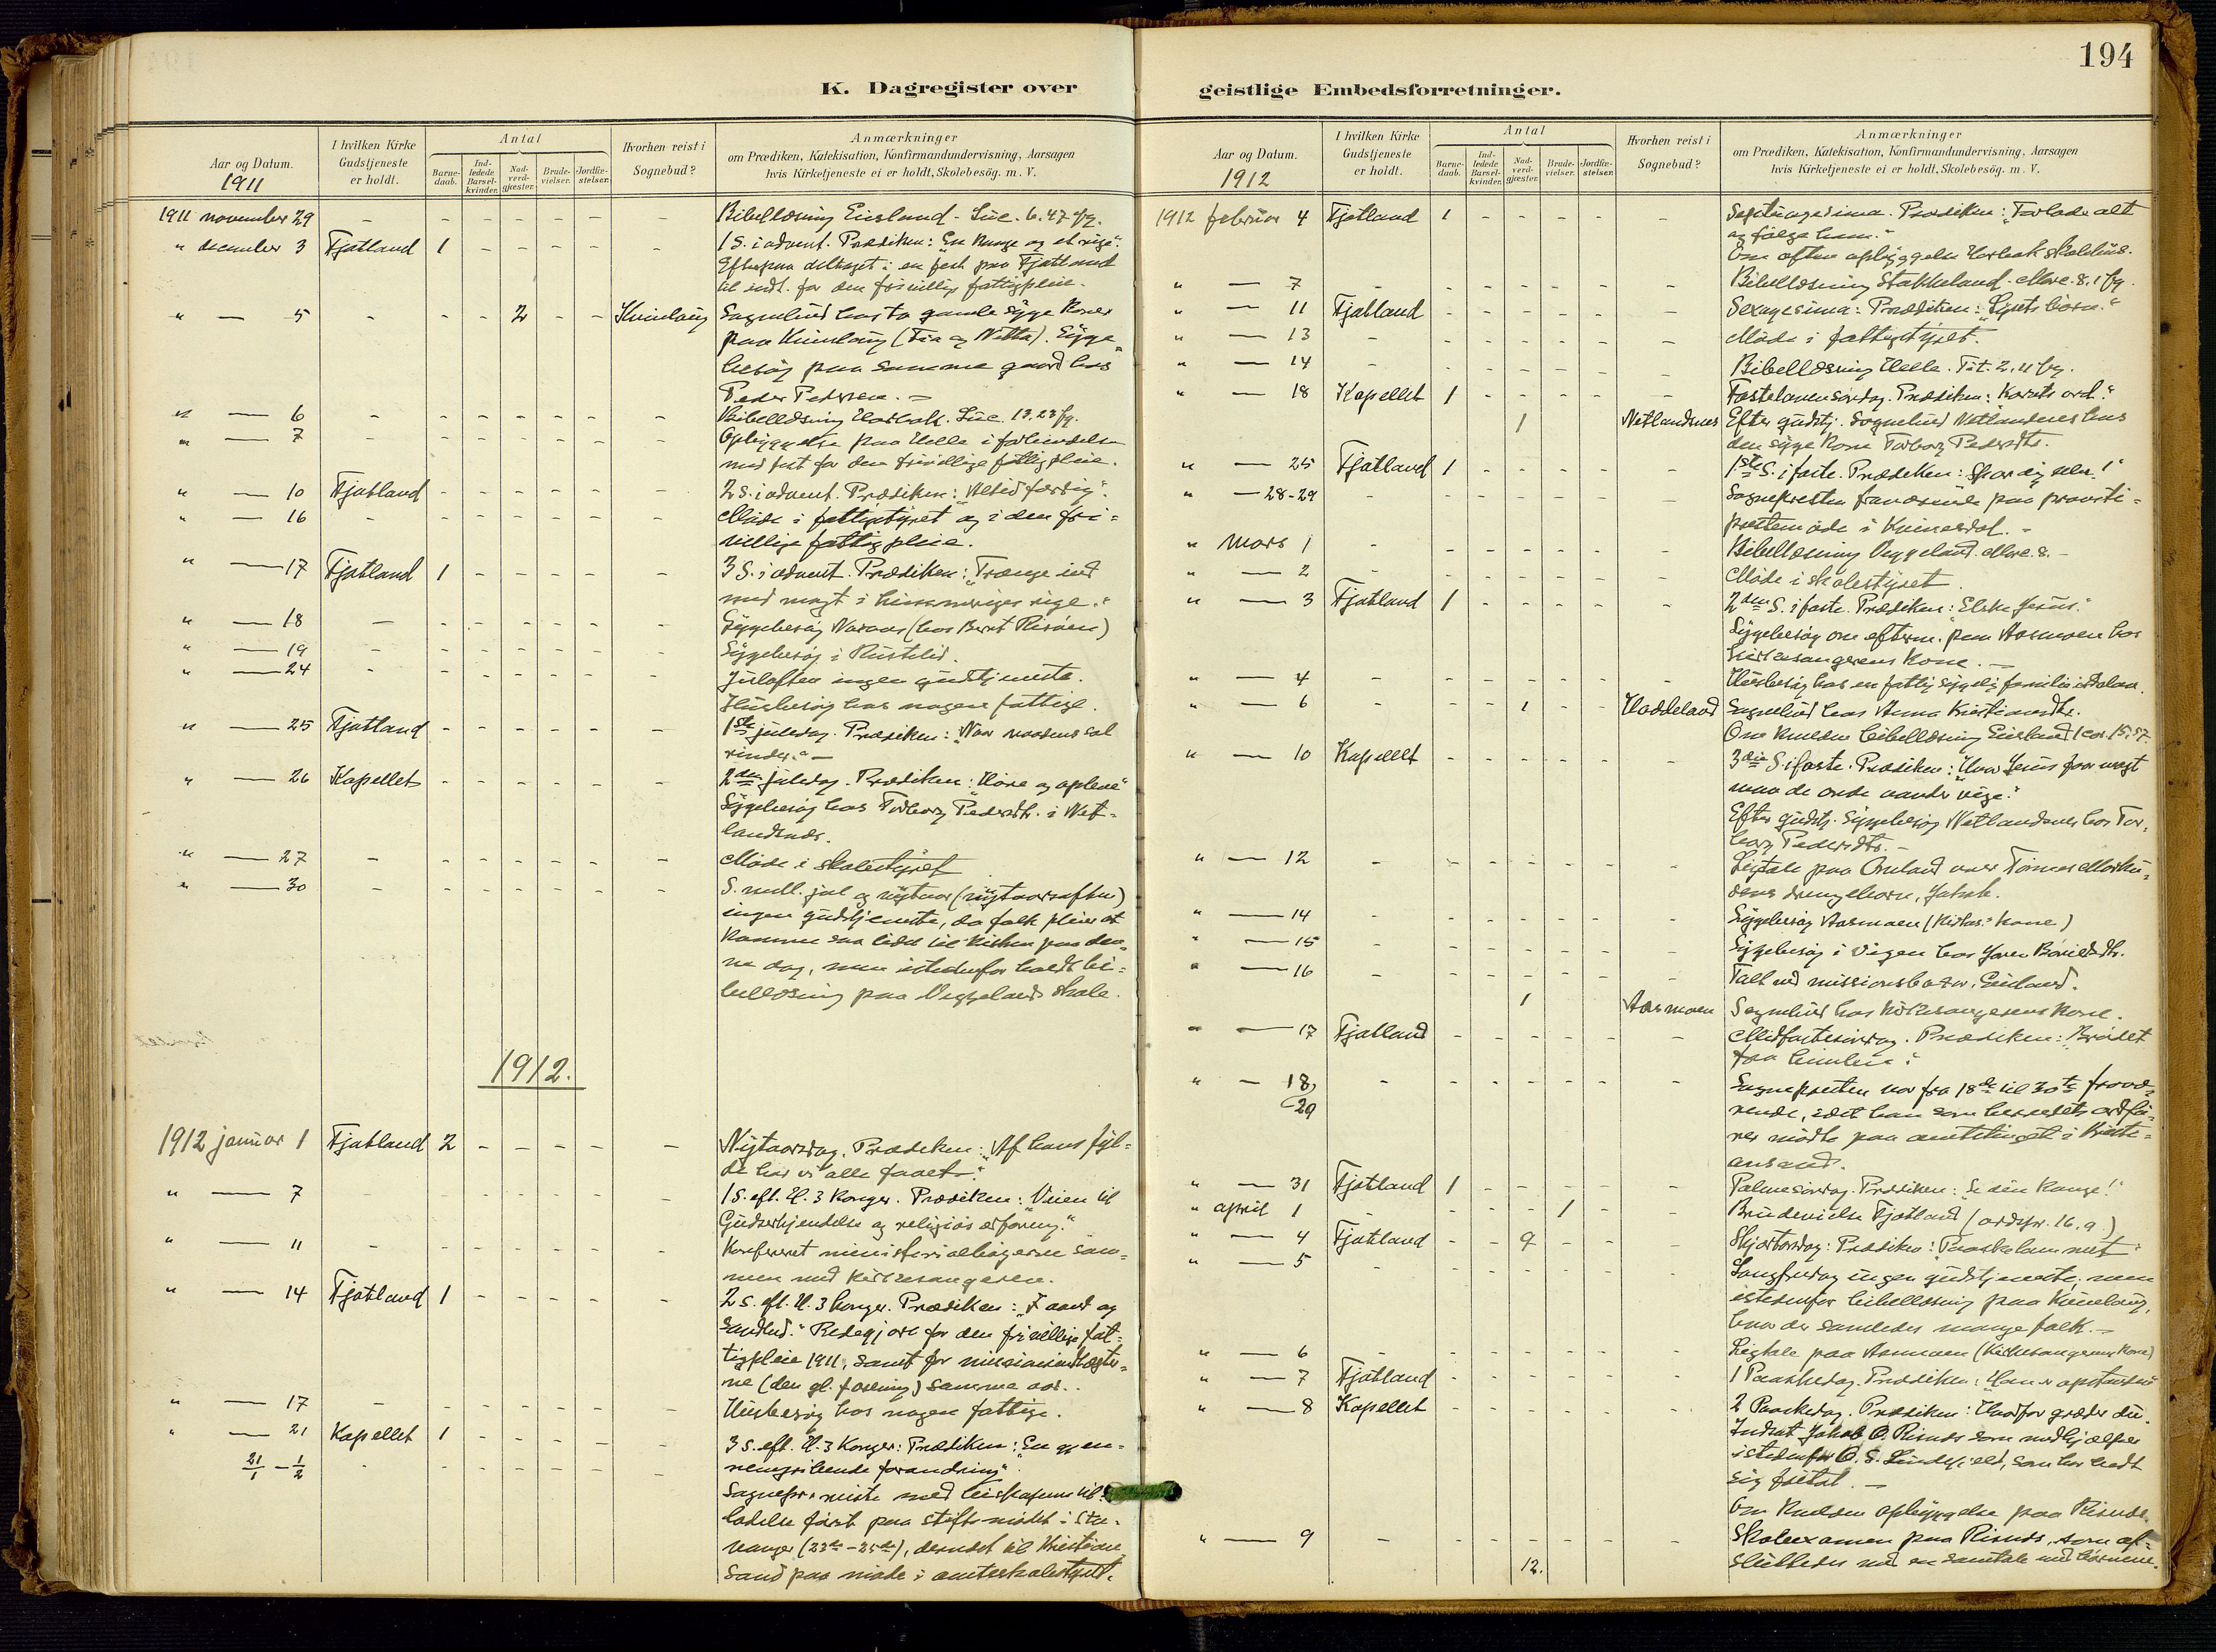 194
K. Dagregister over geistlige Embedsforretninger.
Aar og Datum. 1911
I hvilken Kirke Gudstjeneste er holdt.
Antal
Barne-daab.
Ind-ledede Barsel-kvinder.
Nad-verd-gjæster.
Brude-vielser.
Jordfæ-stelser.
Hvorhen reist i Sognebud?
Anmærkninger
om Prædiken, Katekisation, Konfirmandundervisning, Aarsagen
hvis Kirketjeneste ei er holdt, Skolebesög. m. V.
1911 november 29 - - - - - - - Bibellæsning Eiesland - Luc. 6.47 fg.
" december 3 Fjotland 1 - - - - - 1 S. i advent. Prædiken: "En konge og et rige".
Efterpaa deltaget i en fest paa Fjotland
til indt. for den frivillige fattigpleie.
" — 5 - - - 2 - - Kvinlaug Sognebud hos to gamle syge koner
paa Kvinlaug (Tia og Netta). Syge
besøg paa samme gaard hos
Peder Pedersen. —
" — 6 - - - - - - - Bibellæsning . Luc. 13.23 fg.
" — 7 - - - - - - - Opbyggelse paa Helle i forbindelse
med fest for den frivillige fattigpleie.
" — 10 Fjotland - - - - - - 2 S. i advent. Prædiken: "Altid færdig".
" — 16 - - - - - - - Møde i fattigstyret og i den fri=
villige fattigpleie.
" — 17 Fjotland 1 - - - - - 3 S. i advent. Prædiken: "Trænge ind
med magt i himmeriges rige."
" — 18 - - - - - - - Sygebesøg (hos Berit Risøen)
" — 19 - - - - - - - Sygebesøg i Rustelid.
" — 24 - - - - - - - Juleaften ingen gudstjeneste.
Husbesøg hos nogen fattige.
" — 25 Fjotland - - - - - - 1ste juledag. Prædiken: "Naar naadens sol
rinder." —
" — 26 Kapellet - - - - - - 2den juledag. Prædiken: "Høre og opleve"
Sygebesøg hos Torborg Pedersdtr. i Net=
landsnes.
" — 27 - - - - - - - Møde i skolestyret
" — 30 - - - - - - - S. mell. jul og nytaar (nytaarsaften)
ingen gudstjeneste, da folk pleier at
komme saa lidet til kirken paa den=
ne dag, men istedenfor holdt bi=
bellæsning paa Veggelands skole.
1912.
1912 januar 1 Fjotland 2 - - - - - Nytaarsdag. Prædiken: "Af hans fyl=
de har vi alle faaet."
" — 7 - - - - - - - 1 S. eft. H. 3 Konger. Prædiken: "Veien til
Guds erkjendelse og religiøs erfaring."
" — 11 - - - - - - - Konfereret ministerialbøgerne sam=
men med kirkesangeren.
" — 14 Fjotland 1 - - - - - 2 S. eft. H. 3 Konger. Prædiken: "I aand og
sandhed." Redegjort for den frivillige fat=
tigpleie 1911, samt for missionsindtægter=
ne (den gl. forening) samme aar.
" — 17 - - - - - - - Husbesøg hos nogen fattige.
" — 21 Kapellet 1 - - - - - 3 S. eft. H. 3 Konger: Prædiken: "En gjen=
nemgribende forandring".
21/1 - 1/2 - - - - - - - Sognepr. reiste med biskopens til=
ladelse først paa stiftsmødet i Sta=
vanger (23de-25de), dernæst til Kristian
sand paa møde i amtsskolestyret.
Aar og Datum. 1912
I hvilken Kirke Gudstjeneste er holdt.
Antal
Barne-daab.
Ind-ledede Barsel-kvinder.
Nad-verd-gjæster.
Brude-vielser.
Jordfæ-stelser.
Hvorhen reist i Sognebud?
Anmærkninger
om Prædiken, Katekisation, Konfirmandundervisning, Aarsagen
hvis Kirketjeneste ei er holdt, Skolebesög. m. V.
1912 februar 4 Fjotland 1 - - - - - Septuagesima. Prædiken: "Forlade alt
og følge ham."
Om aften opbyggelse skolehus.
" — 7 - - - - - - - Bibellæsning Stakkeland - Marc. 8.1 fg.
" — 11 Fjotland - - - - - - Sexagesima: Prædiken: "Lysets børn."
" — 13 - - - - - - - Møde i fattigstyret.
" — 14 - - - - - - - Bibellæsning Helle. Tit. 2.11 fg.
" — 18 Kapellet 1 - - - - - Fastelavensøndag. Prædiken: "Korsets ord."
1 Netlandsnes Efter gudstj. sognebud Netlandsnes hos
den syge kone Torborg Pedersdtr.
" — 25 Fjotland 1 - - - - - 1ste S. i faste. Prædiken: "Spar dig selv!"
" — 28-29 - - - - - - - Sognepresten fraværende paa provsti=
prestemøde i Kvinesdal. -
" mars 1 - - - - - - - Bibellæsning Veggeland. Marc. 8. -
" — 2 - - - - - - - Møde i skolestyret.
" — 3 Fjotland 1 - - - - - 2den S. i faste. Prædiken: "Elske Jesus."
Sygebesøg om efterm. paa Aasmoen hos
kirkesangerens kone. —
" — 4 - - - - - - - Husbesøg hos en fattig sygelig familie i
" — 6 - - - 1 - - Haddeland Sognebud hos Anna Kristiansdtr.
Om kvelden bibellæsning Eiesland 1 Cor. 15.57
" — 10 Kapellet - - - - - - 3die S. i faste. Prædiken: "Hvor Jesus faar magt
maa de onde aander vige."
Efter gudstj. sygebesøg Netlandsnes hos Tor=
borg Pedersdtr. -
" — 12 - - - - - - - Ligtale paa over Tomas
drengebarn, Jakob.
" — 14 - - - - - - - Sygebesøg Aasmoen (Kirkes. kone)
" — 15 - - - - - - - Sygebesøg i Vigen hos
" — 16 - - - - - - - Talt ved missionsbazar, Eiesland.
1 Aasmoen Sognebud hos kirkesangerens kone.
" — 17 Fjotland - - - - - - Midfastesøndag. Prædiken: "Brødet
fra himlen".
" — 18, 29 - - - - - - - Sognepresten var fra 18de til 30te fravæ=
rende, idet han som herredets ordfø=
rer mødte paa amtstinget i Kristi=
ansand.
" — 31 Fjotland 1 - - - - - Palmesøndag. Prædiken: "Se din konge!"
" april 1 - - - - 1 - - Brudevielse Fjotland (ordspr. 16.9)
" — 4 Fjotland - - 9 - - - Skjærtorsdag: Prædiken: "Paaskelammet"
" — 5 - - - - - - - Langfredag ingen gudstjeneste, men
istedenfor bibellæsning paa Kvinlaug,
hvor der samledes mange folk. —
" — 6 - - - - - - - Ligtale paa Aasmoen (kirkesangerens kone)
" — 7 Fjotland - - - - - - 1 Paaskedag. Prædiken: "Han er opstanden"
" — 8 Kapellet - - - - - - 2 Paaskedag. Prædiken: "Hvorfor græder du.
Indsat Jakob O. Risnes som medhjælper
istedenfor O. S. , som har bedt
sig fritat. —
Om kvelden opbyggelse paa Risnes.
" — 9 - - - - - - - Skoleexamen paa Risnes, som af=
12. sluttedes med en samtale med børnene.